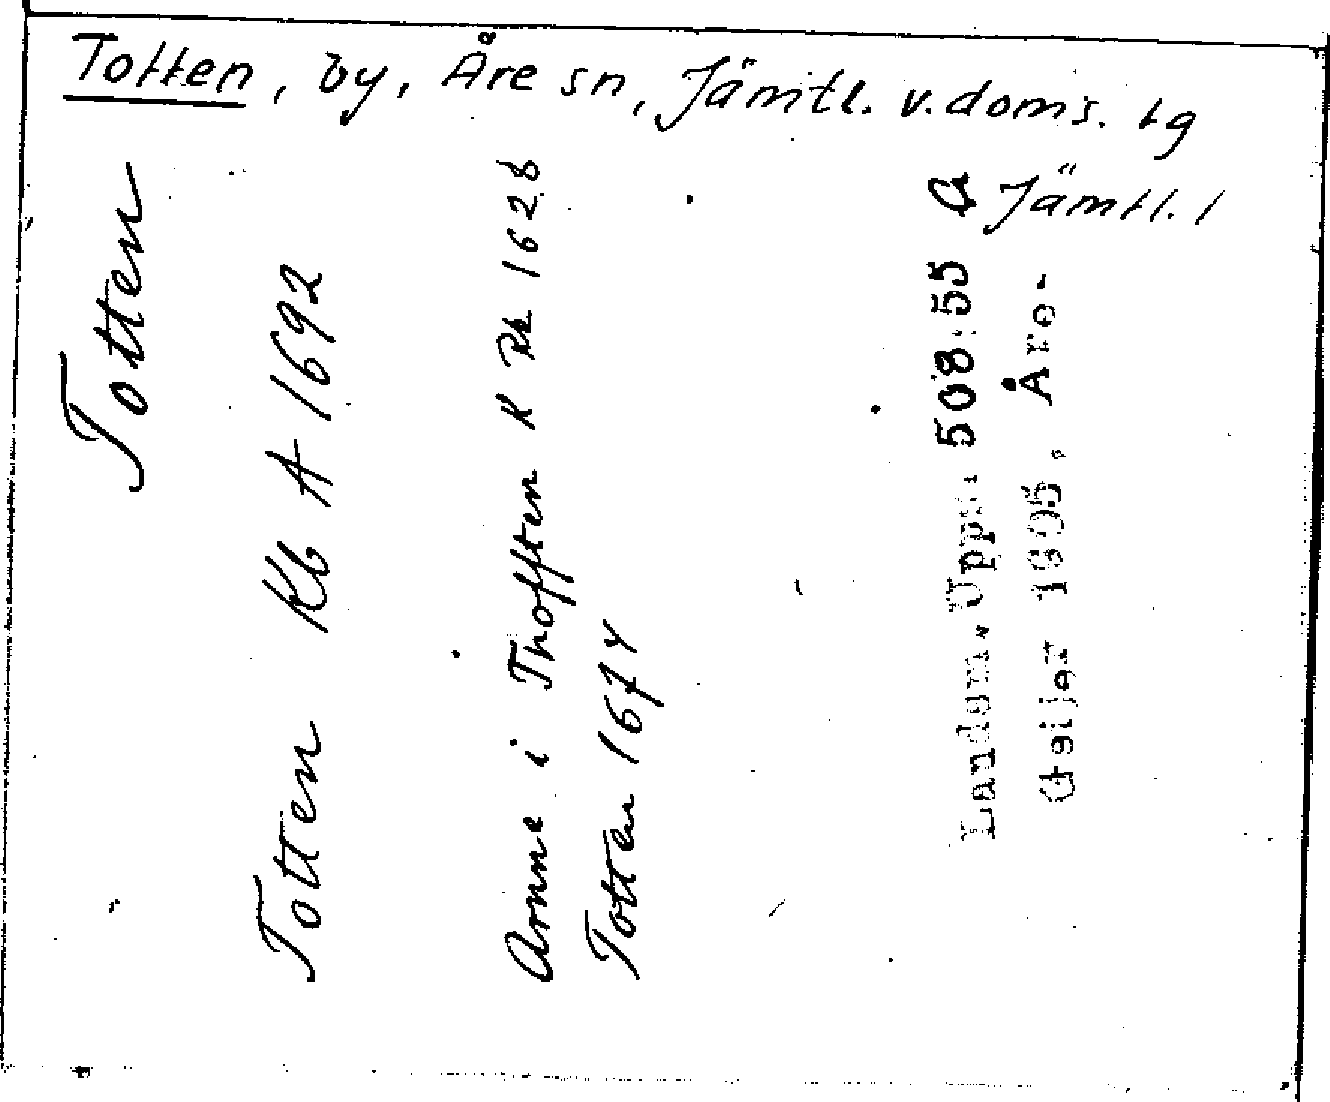 Totten, by, Åre sn, Jämtl. v. doms. tg
Jämtl. l
Totten
Totten Kb A 1692
Arnne i Thofften K Rk 1628
Totten 1674
Landsm. Upps. 508:55 a
Geijer 1905, Åre-